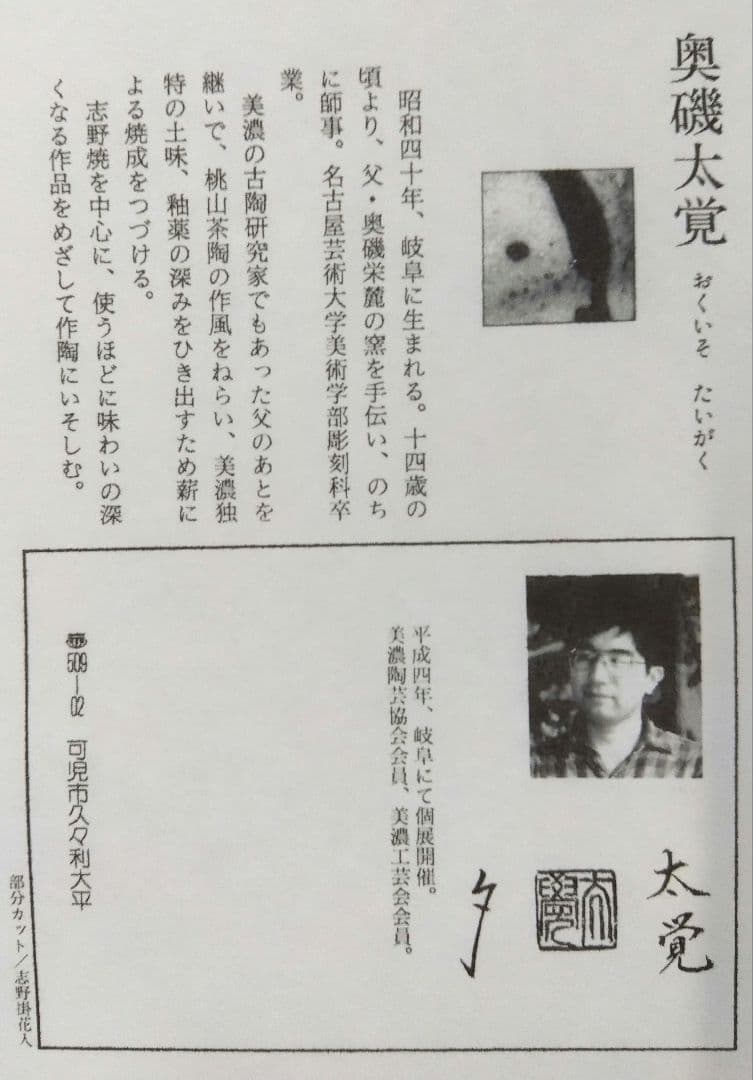 奥磯太覚
おくいそ　たいがく
昭和四十年、岐阜に生まれる。十四歳の
頃より、父・奥磯栄麓の窯を手伝い、のち
に師事。名古屋芸術大学美術学部彫刻科卒
業。
美濃の古陶研究家でもあった父のあとを
継いで、桃山茶陶の作風をねらい、美濃独
特の土味、釉薬の深みをひき出すため薪に
よる焼成をつづける。
志野焼を中心に、使うほどに味わいの深
くなる作品をめざして作陶にいそしむ。
太覚
太學
夕
平成四年、岐阜にて個展開催。
美濃陶芸協会会員、美濃工芸会会員。
〠509―02　可児市久々利大平
部分カット／志野掛花入